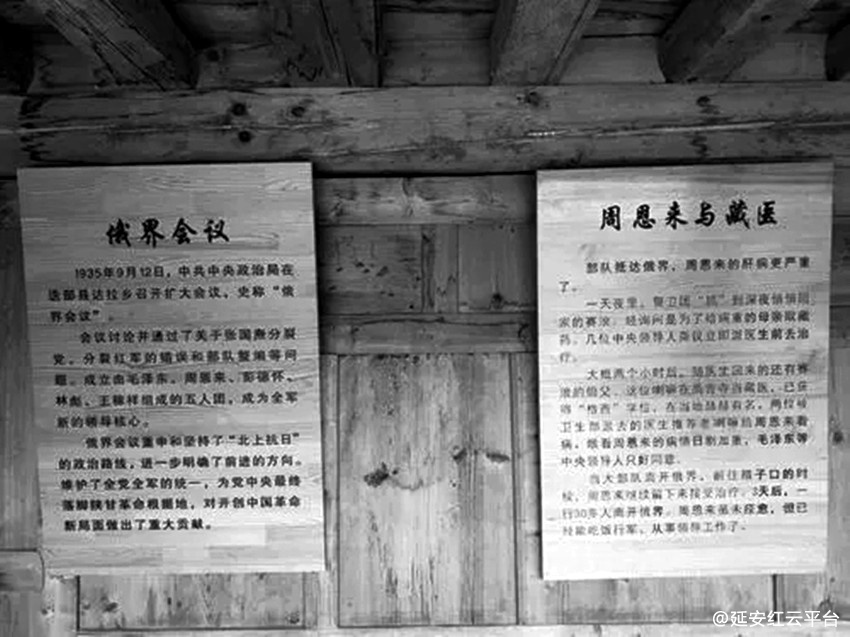 俄界会议
1935年9月12日，中共中央政治局在
迭部县达拉乡召开扩大会议，史称“俄
界会议”。
会议讨论并通过了关于张国焘分裂
党、分裂红军的错误和部队整编等问
题。成立由毛泽东、周恩来、彭德怀、
林彪、王稼祥组成的五人团，成为全军
新的领导核心。
俄界会议重申和坚持了“北上抗日”
的政治路线，进一步明确了前进的方向。
维护了全党全军的统一，为党中央最终
落脚陕甘革命根据地，对开创中国革命
新局面做出了重大贡献。
周恩来与藏医
部队抵达俄界，周恩来的肝病更严重
了。
一天夜里，警卫团“抓”到深夜悄悄回
家的赛波，经询问是为了给病重的母亲取藏
药，几位中央领导人商议立即派医生前去治
疗。
大概两个小时后，随医生回来的还有赛
波的伯父，这位喇嘛在当藏医，已获
得“格西”学位，在当地有名，两位被
卫生部派去的医生推荐老喇嘛给周恩来看
病，眼看周恩来的病情日渐加重，毛泽东等
中央领导人只好同意。
当大部队离开俄界，前往腊子口的时
候，周恩来继续留下来接受治疗。3天后，一
行30多人离开俄界。周恩来虽未痊愈，但已
经能吃饭行军，从事领导工作了。
@延安红云平台